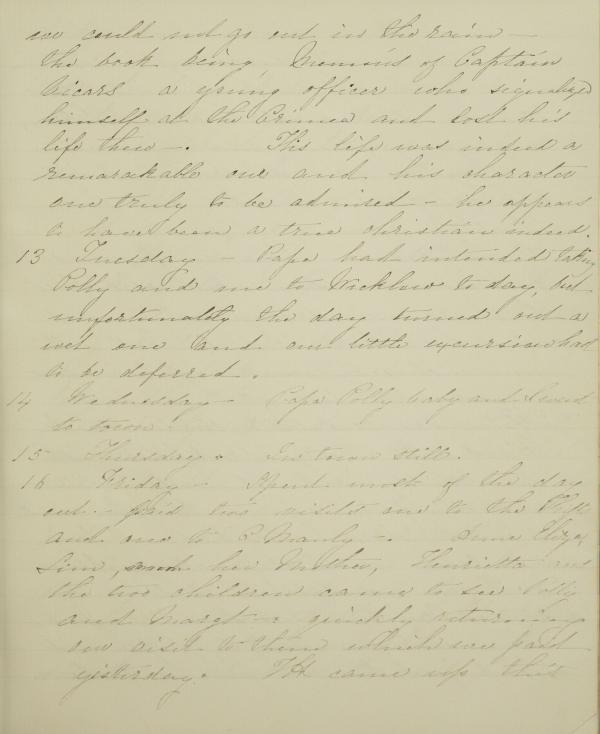 we could not go out in the rain —
the book being Memoirs of Captain
Vicars a young officer who signalized
himself at the Crimea and lost his
life there —. This life was indeed a
remarkable one and his character
one truly to be admired — he appears
to have been a true christian indeed.
13 Tuesday — Papa had intended taking
Polly and me to Wicklow to day, but
unfortunately the day turned out a
wet one and our little excursion had
to be deferred.
14 Wednesday — Papa Polly baby and I went
to town
15 Thursday. In town still.
16 Friday — Spent most of the day
out — paid two visits one to the
and one to Manly —. Anne Eliza,
her Mother, Henrietta and
the two children came to see Polly
and Margt — quickly returning
our visit to them which we paid
yesterday. came up this